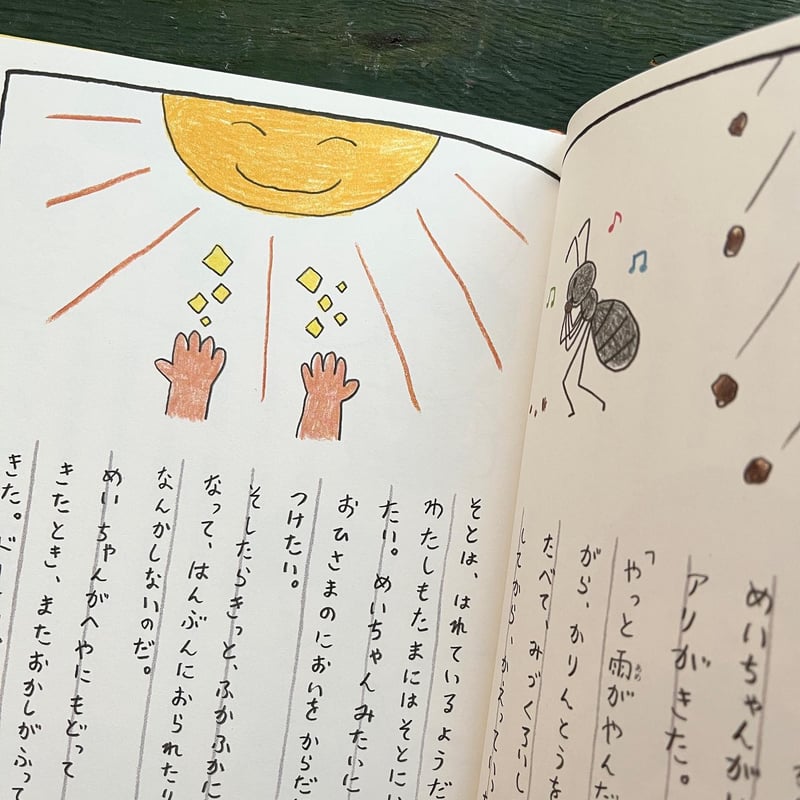 めいちゃんがい
アリがきた。
「やっと雨がやんだ
あめ
がら、かりんとうを
たべて、みづくろいし
してから、かえってい
そとは、はれているようだ
わたしもたまにはそとにい
たい。めいちゃんみたいに
おひさまのにおいをからだ
つけたい。
そしたらきっと、ふかふかに
なって、はんぶんにおられたり
なんかしないのだ。
めいちゃんがへやにもどって
きたとき、またおかしがふって
きた。